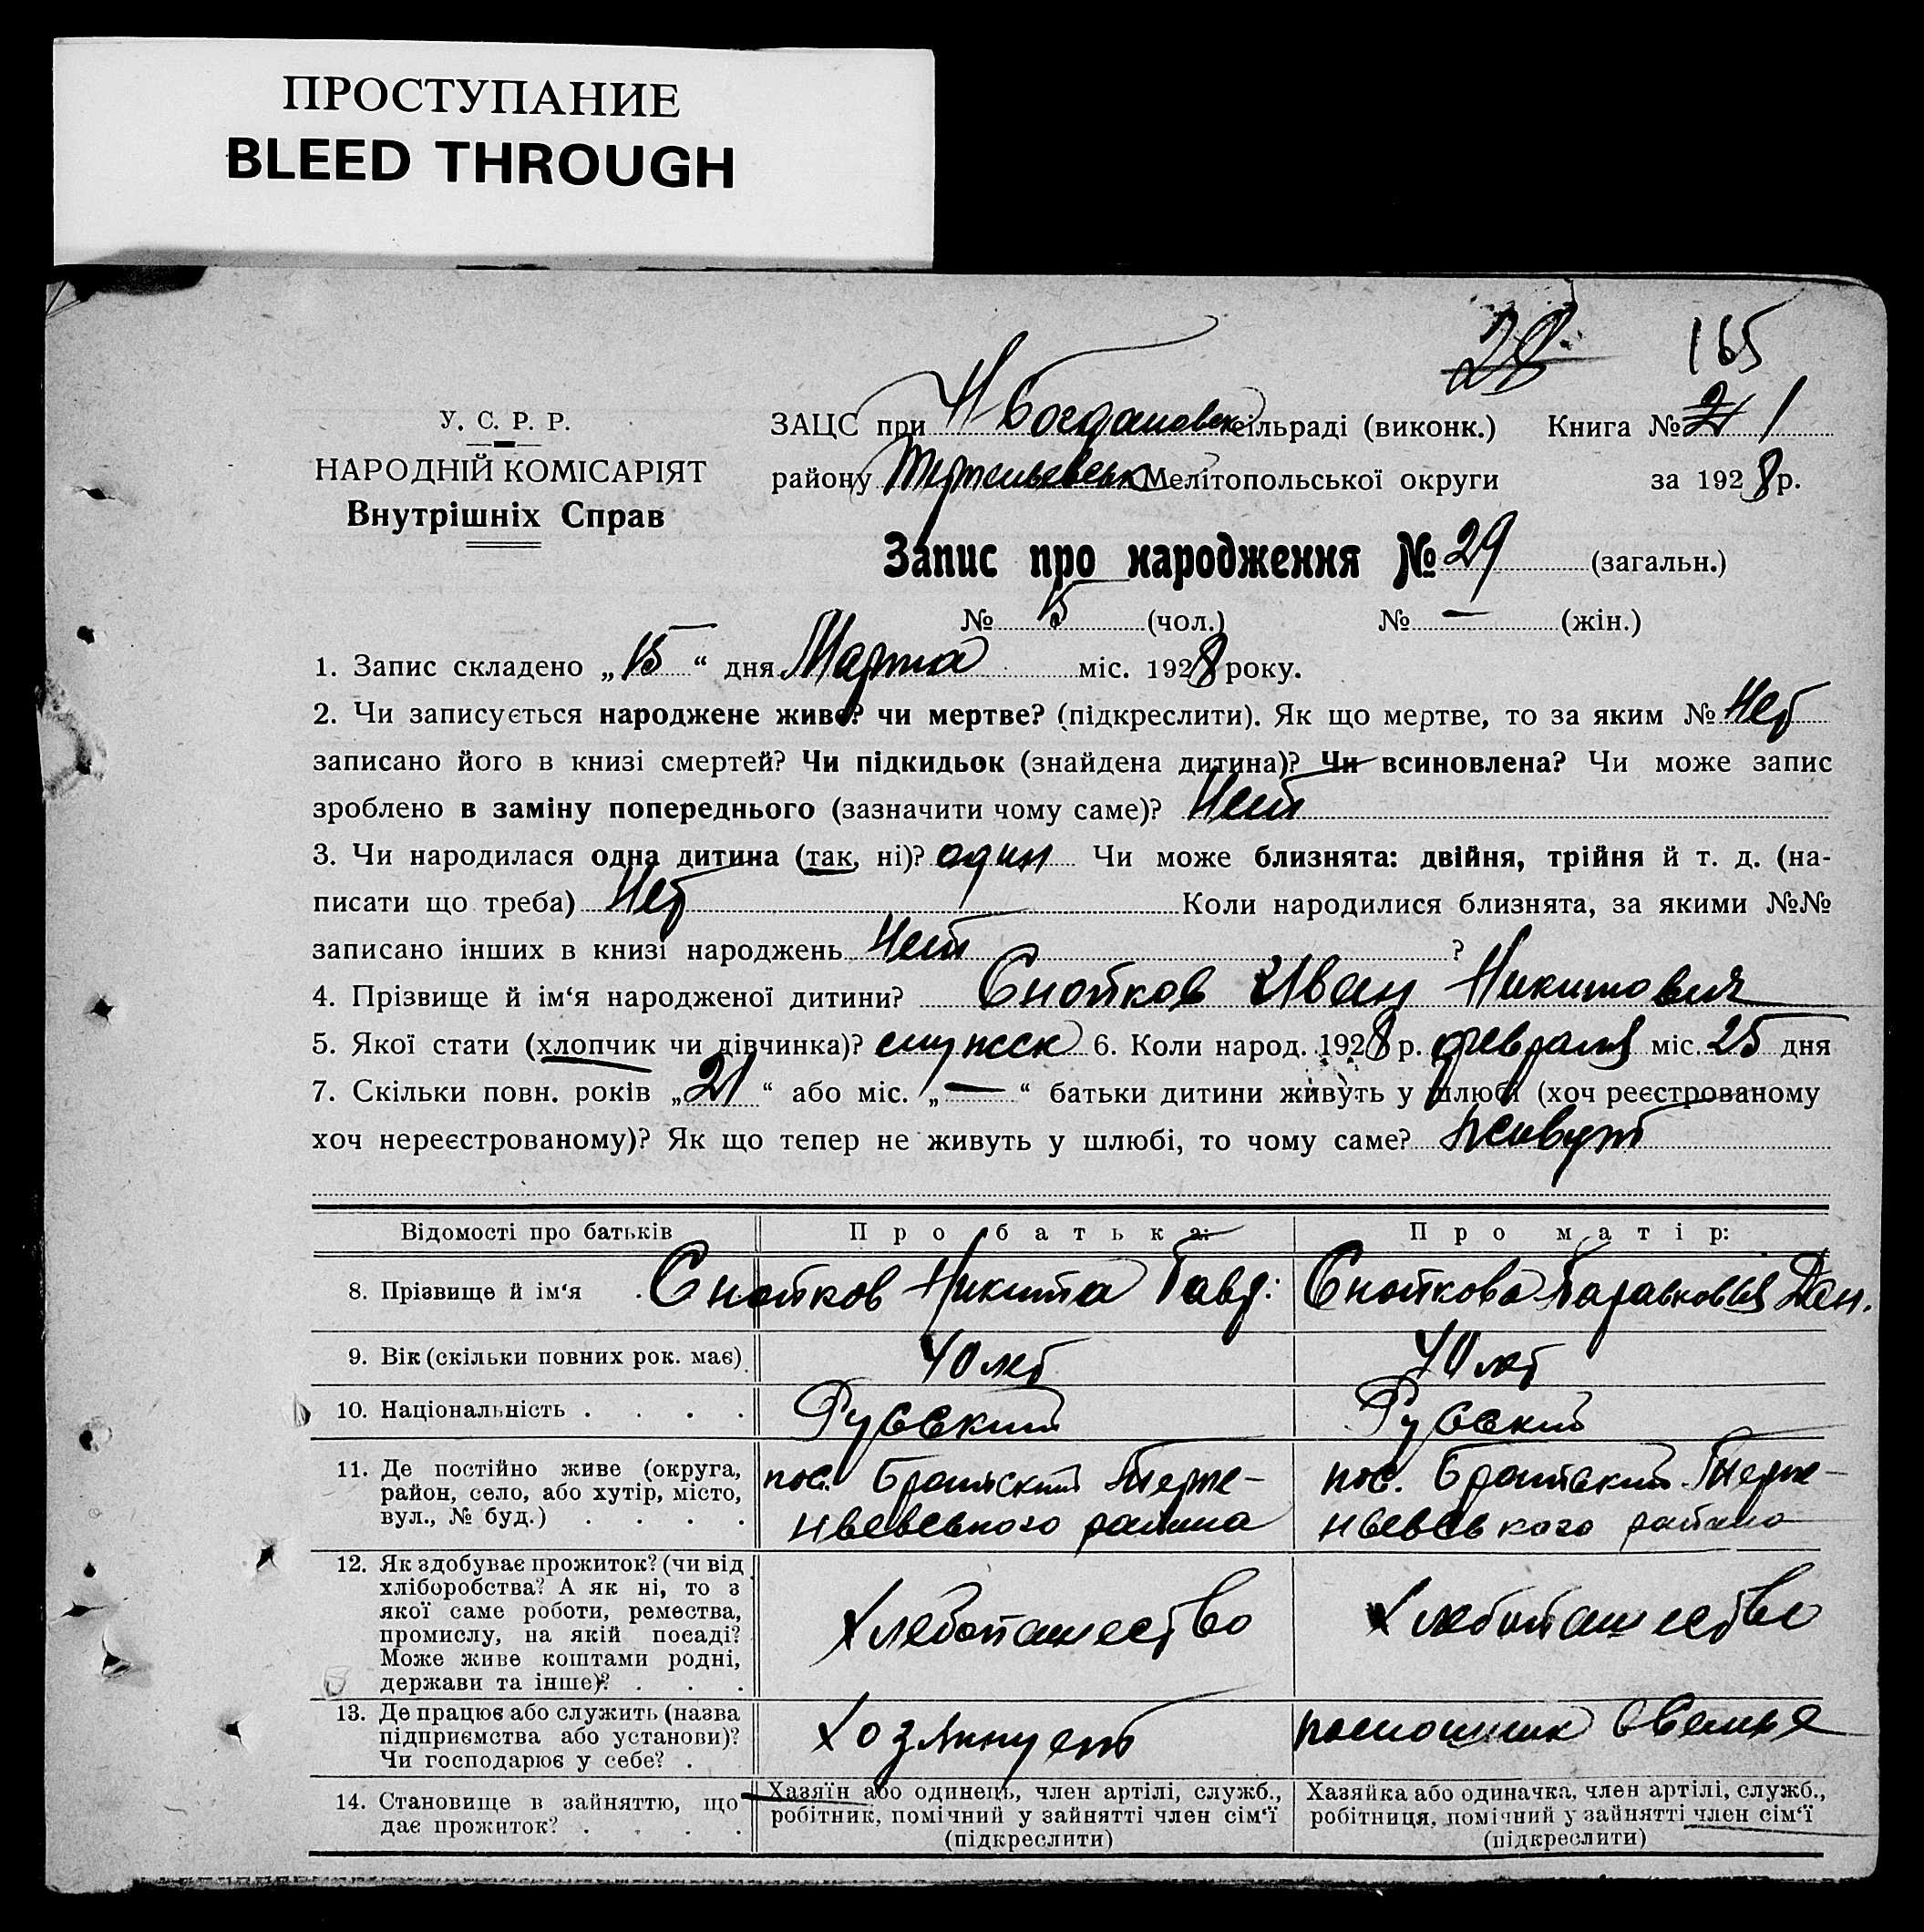 ПРОСТУПАНИЕ
BLEED THROUGH
28 165
У. С. Р. Р.
НАРОДНІЙ КОМІСАРІЯТ
Внутрішніх Справ
ЗАЦС при Н Богдановск сільраді (виконк.) Книга № 21 1
району Мелітопольської округи за 1928 р.
Запис про народження № 29 (загальн.)
№ 15 (чол.) № — (жін.)
1. Запис складено „15“ дня Марта міс. 1928 року.
2. Чи записується народжене живе? чи мертве? (підкреслити). Як що мертве, то за яким № Нет
записано його в книзі смертей? Чи підкидьок (знайдена дитина)? Чи всиновлена? Чи може запис
зроблено в заміну попереднього (зазначити чому саме)? Нет
3. Чи народилася одна дитина (так, ні)? один Чи може близнята: двійня, трійня й т. д. (на-
писати що треба) Нет Коли народилися близнята, за якими №№
записано інших в книзі народжень Нет ?
4. Прізвище й ім‘я народженої дитини? Снопков Иван Никитович
5. Якої стати (хлопчик чи дівчинка)? 6. Коли народ. 1928 р. февраля міс. 25 дня
7. Скільки повн. років „21“ або міс. „—“ батьки дитини живуть у шлюбі (хоч реєстрованому
хоч нереєстрованому)? Як що тепер не живуть у шлюбі, то чому саме? живут
Відомості про батьків Про батька: Про матір:
8. Прізвище й ім‘я . Снопков Никита Гавр: Снопкова Дан.
9. Вік (скільки повних рок. має) 40 лет 40 лет
10. Національність . . . . Русский Русский
11. Де постійно живе (округа,
район, село, або хутір, місто,
вул., № буд.) . . . .
пос. Братский Терпе-
ньевского района
пос. Братский Терпе-
ньевского района
12. Як здобуває прожиток? (чи від
хліборобства? А як ні, то з
якої саме роботи, ремества,
промислу, на якій посаді?
Може живе коштами родні,
держави та інше)? . . .
Хлебопашество Хлебопашество
13. Де працює або служить (назва
підприємства або установи)?
Чи господарює у себе? .
Хозяинует помощник в семье
14. Становище в зайняттю, що
дає прожиток? . . . .
Хазяїн або одинець, член артілі, служб.,
робітник, помічний у зайнятті член сім‘ї
(підкреслити)
Хазяйка або одиначка, член артілі, служб.,
робітниця, помічний у зайнятті член сім‘ї
(підкреслити)